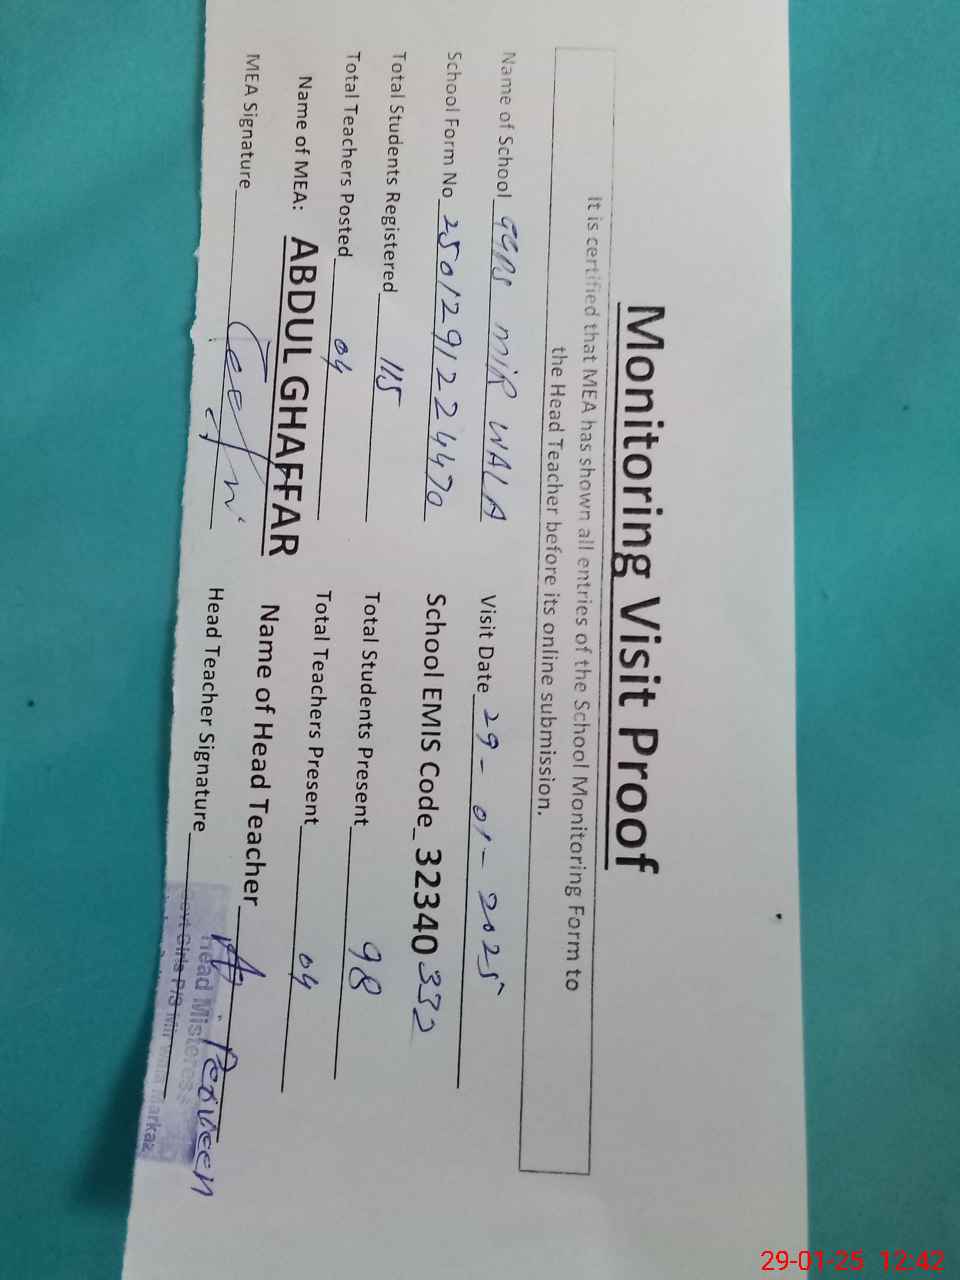 Monitoring Visit Proof
It is certified that MEA has shown all entries of the School Monitoring Form to
the Head Teacher before its online submission.
Name of School GGPS MIR WALA Visit Date 29-01-2025
School Form No 2501291224470 School EMIS Code_ 32340332
Total Students Registered 115 Total Students Present 98
Total Teachers Posted 04 Total Teachers Present 04
Name of MEA: ABDUL GHAFFAR Name of Head Teacher Parveen
MEA Signature Head Teacher Signature
Head Misteress
Govt Girls P/S Mir Wala Markaz
29-01-25 12:42